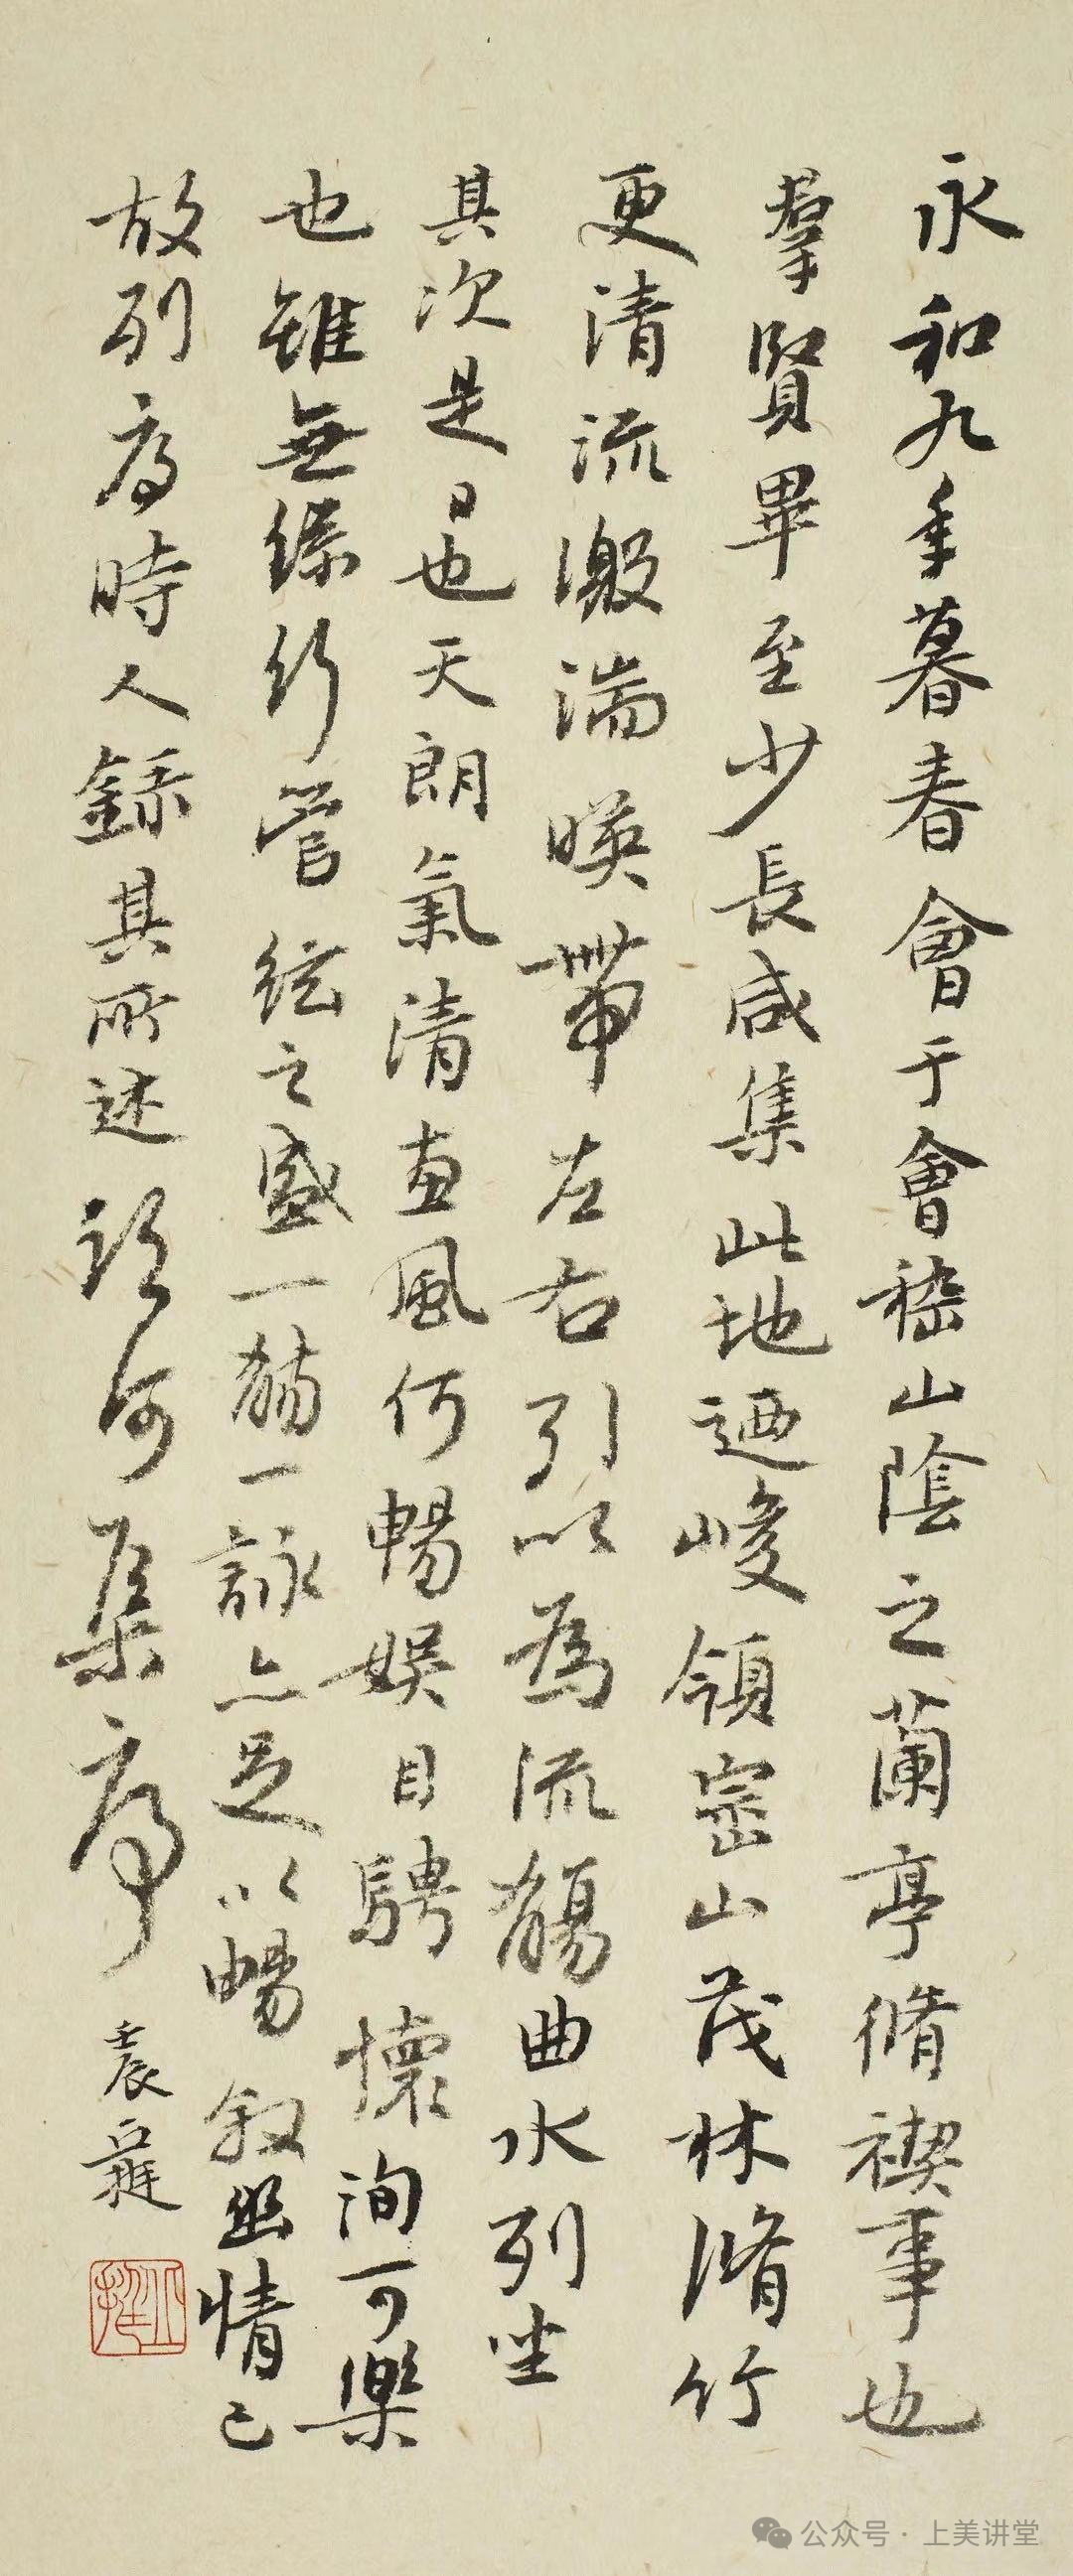 永和九年暮春會于會稽山陰之蘭亭脩禊事也
羣賢畢至少長咸集此地迺峻領崇山茂林脩竹
更清流激湍暎帶左右引以為流觴曲水列坐
其次是日也天朗氣清惠風何暢娛目騁懷洵可樂
也雖無絲竹管絃之盛一觴一詠亦足以暢敘幽情已
故列序時人錄其所述臨河集序 壬辰
公众号·上美讲堂